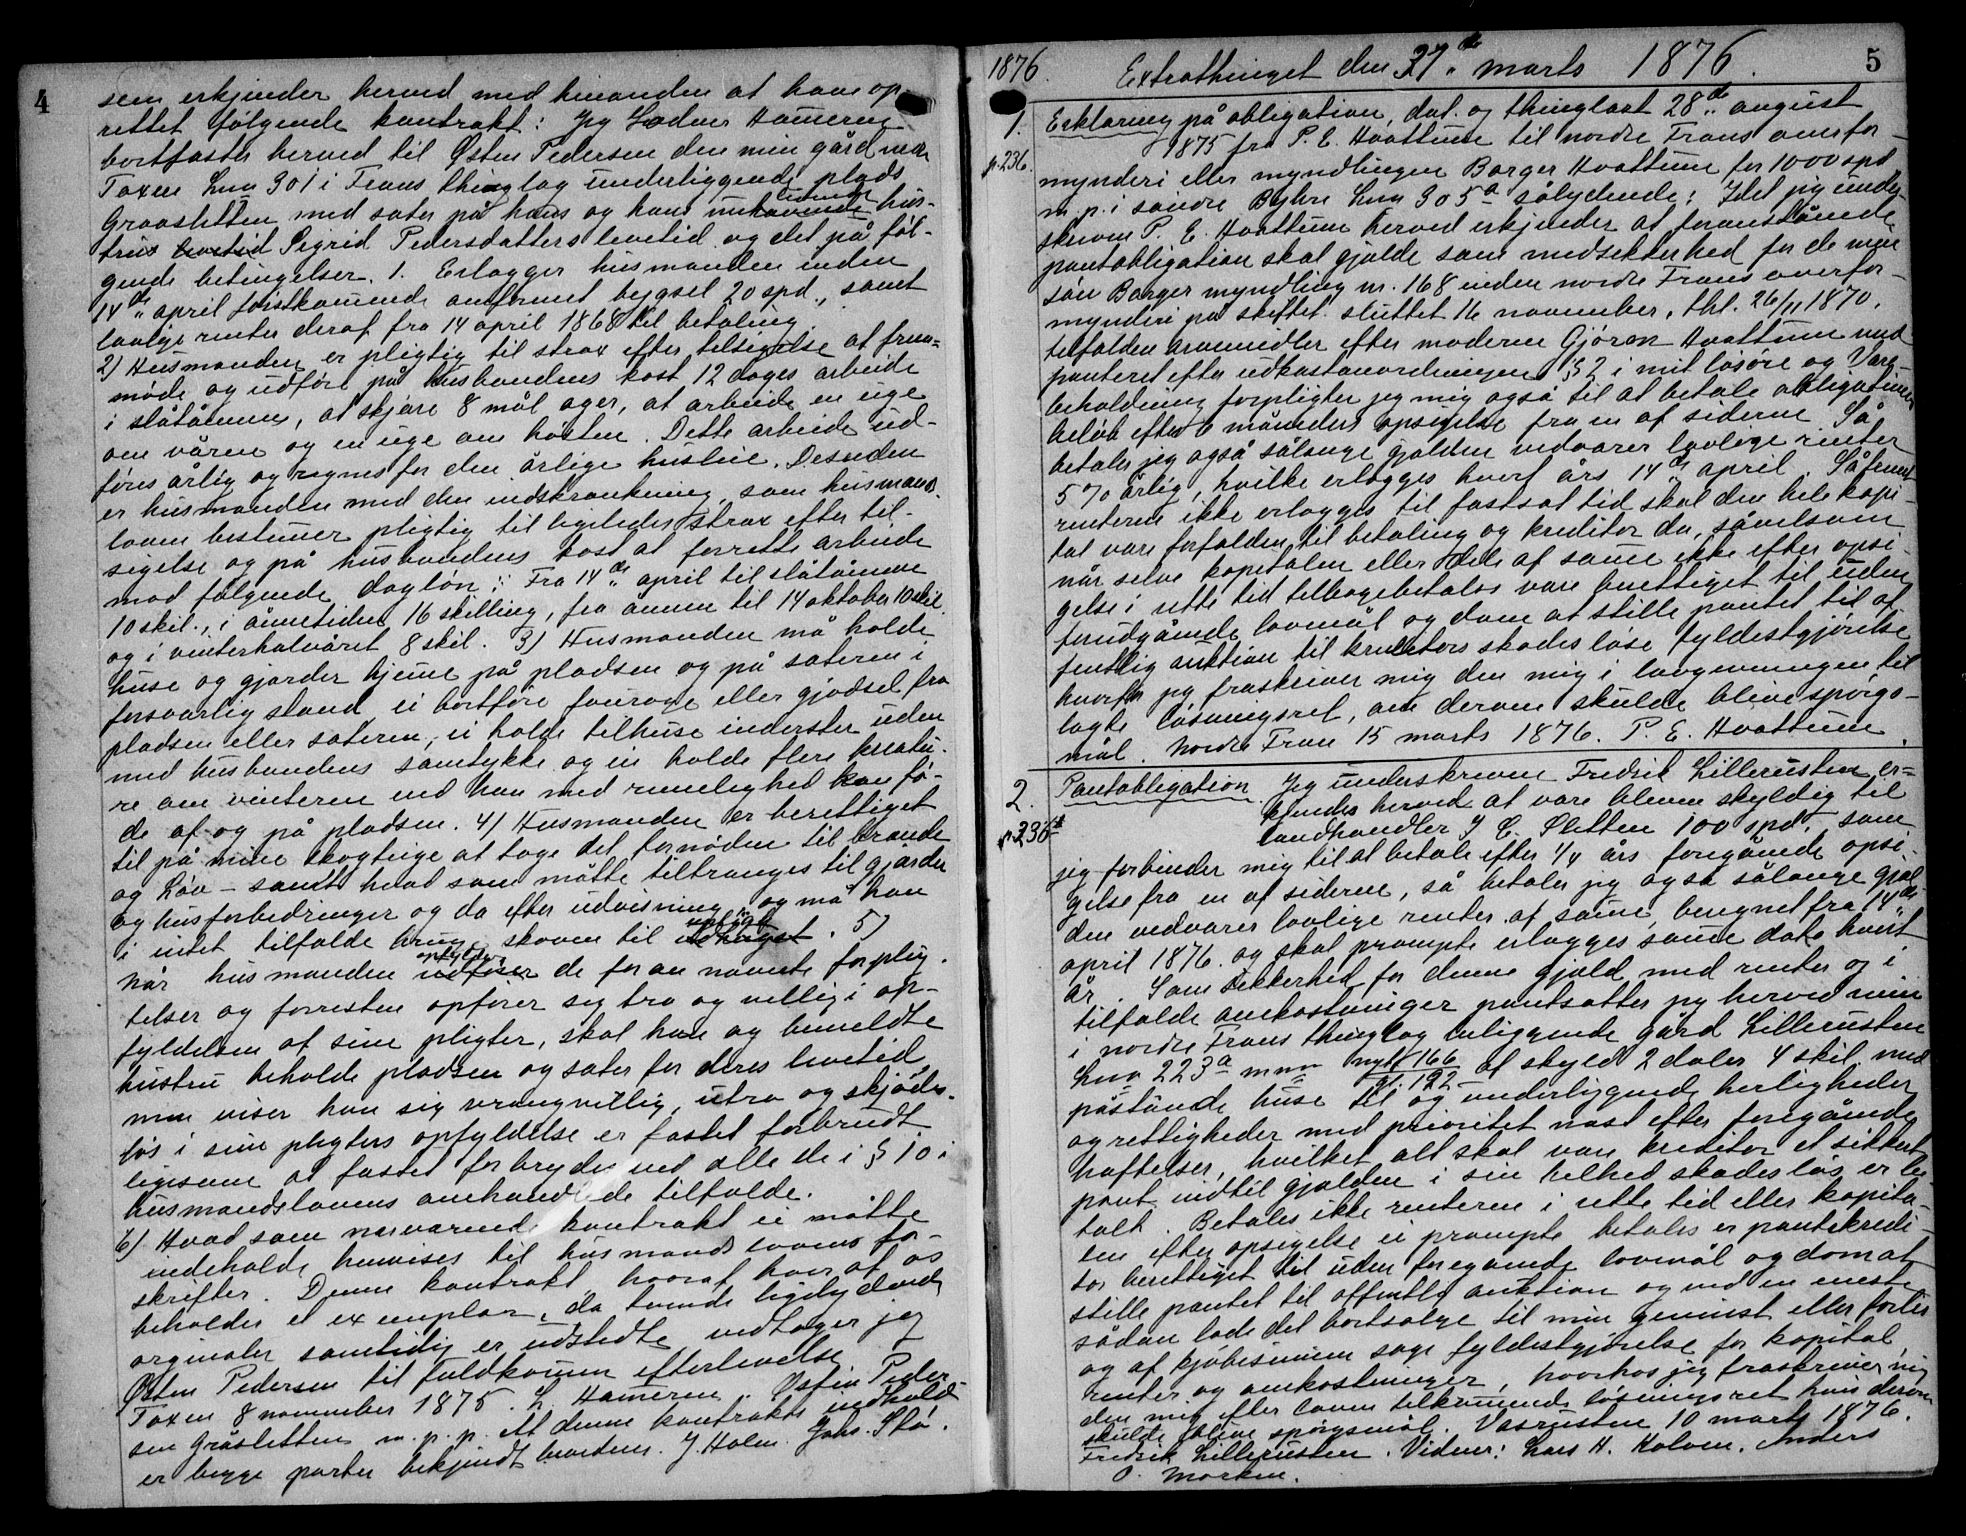 4
sem erkjender herved med hinanden at have op-
rettet følgende kontrakt: Jeg Hameren
bortfæster herved til Østen Pedersen den min gård nordre
Toxen Lnr 301 i Frons thinglag underliggende plads
Graasletten med sæter på hans og hans nuhavende hus-
trus levetid Sigrid Pedersdatters levetid og det på føl-
gende betingelser. 1. Erlægger husmanden inden
14de april førstkommende omforenet bygsel 20 spd., samt
lovlige renter deraf fra 14 april 1868 til betaling.
2) Husmanden er pligtig til strax efter tilsigelse at frem-
møde og udføre på husbondens kost 12 dages arbeide
i slåtånnen, at skjære 8 mål ager, at arbeide en uge
om våren og en uge om høsten. Dette arbeide ud-
føres årlig og regnes for den årlige husleie. Desuden
er husmanden med den indskrænkning, som husmands-
loven bestemer pligtig til ligeledes strax efter til-
sigelse og på husbondens kost at forrette arbeide
mod følgende dagløn: Fra 14de april til slåtånnen
10 skil., i ånnetiden 16 skilling, fra ånnen til 14 oktober 10 skil.
og i vinterhalvåret 8 skil. 3) Husmanden må holde
huse og gjærder hjeme på pladsen og på sæteren i
forsvarlig stand ei bortføre fourage eller gjødsel fra
pladsen eller sæteren, ei holde tilhuse inderster uden
med husbondens samtykke og ei holde flere kreatu-
re om vinteren end han med rimelighed kan fø-
de af og på pladsen. 4) Husmanden er berettiget
til på mine skogteige at tage det fornødne til brænde
og Løv - samt hvad som måtte tiltrænges til gjærder
og husforbedringer og da efter udvisning og må han
i intet tilfælde bruge skoven til . 5)
Når husmanden opfylder udfører de foran nævnte forplig-
telser og forresten opfører sig tro og villig i op-
fyldelsen af sine pligter, skal han og bemeldte
hustru beholde pladsen og sæter for deres levetid,
men viser han sig vrangvillig, utro og skjødes-
løs i sine pligters opfyldelse er fæstet forbrudt
ligesom at fæstet forbrydes ved alle de i § 10 i
husmandslovens omhandlede tilfælde.
6) Hvad som nærværende kontrakt ei måtte
indeholde henvises til husmandslovens for-
skrifter. Denne kontrakt, hvoraf hver af os
beholder et exemplar, da tvende ligelydende
orginaler samtidig er udstedte vedtager jeg
Østen Pedersen til fuldkommen efterlevelse
Toxen 8 november 1875. L. Hameren. Østen Peder-
sen Gråsletten m. p. p. At denne kontrakts indhold
er begge parter bekjendt bevidnes. J. Holm. Johs. Stå.
1876. Extrathinget den 31te marts 1876. 5
1. Erklæring på obligation, dat. og thinglæst 28de august
p. 236. 1875 fra P. E. Hvattum til nordre Frons overfor-
mynderi eller myndlingen Borger Hvattum for 1000 spd
m. p. i søndre Byhre Lnr 305a sålydende: Idet jeg under-
skreven P. E. Hvattum herved erkjender at foranstående
pantobligation skal gjælde som medsikkerhed for de min
søn Borger myndling nr. 168 inden nordre Frons overfor-
mynderi på skiftet sluttet 16 november, thl. 26/11 1870,
tilfaldne arvemidler efter moderen Gjøron Hvattum med
panteret efter udkastanordningen § 2 i mit løsøre og Vare-
beholdning forpligter jeg mig også til at betale obligationens
beløb efter 6 måneders opsigelse fra en af siderne. Så
betaler jeg også sålænge gjælden vedvarer lovlige renter
5 % årlig, hvilke erlægges hvert års 14de april. Såfremt
renterne ikke erlægges til fastsat tid skal den hele kapi-
tal være forfalden til betaling og kreditor da, såvelsom
når selve kapitalen eller dele af same ikke efter opsi-
gelse i rette tid tilbagebetales være berettiget til uden
forudgående lovmål og dom at stille pantet til of-
fentlig auktion til kreditors skadesløse fyldestgjørelse
hvorhos jeg fraskriver mig den mig i lovgivningen til-
lagte løsningsret, om derom skulde blive spørgs-
mål. Nordre Fron 15 marts 1876. P. E. Hvattum
2. Pantobligation Jeg underskreven Fredrik Lillerusten er-
p. 236 kjender herved at være bleven skyldig til
landhandler J C. Sletten 100 spd. som
jeg forbinder mig til at betale efter 1/4 års foregående opsi-
gelse fra en af siderne, så betaler jeg også sålænge gjæl-
den vedvarer lovlige renter af same, beregnet fra 14de
april 1876 og skal prompte erlægges same dato hvert
år. Som sikkerhed for denne gjæld med renter og i
tilfælde omkostninger pantsætter jeg herved min
i nordre Frons thinglag beliggende gård Lillerusten
Lnr 223a mnr nyt 166 gl. 122 af skyld 2 daler 4 skil. med
påstående huse til og underliggende herligheder
og rettigheder med prioritet næst efter foregående
hæftelser, hvilket alt skal være kreditor et sikkert
pant indtil gjælden i sin helhed skadesløs er be-
talt. Betales ikke renterne i rette tid eller kapita-
len efter opsigelse ei prompte betales er pantekredi-
tor berettiget til uden foregående lovmål og dom at
stille pantet til offentlig auktion og ved en eneste
sådan lade det bortsælge til min gevinst eller forlis
og af kjøbesummen søge fyldestgjørelse for kapital,
renter og omkostninger, hvorhos jeg fraskriver mig
den mig efter loven tilkommende løsningsret hvis derom
skulde blive spørgsmål. Vasrusten 10 marts 1876.
Fredrik Lillerusten. Vidner: Lars H. Kolven. Anders
O. Morken.